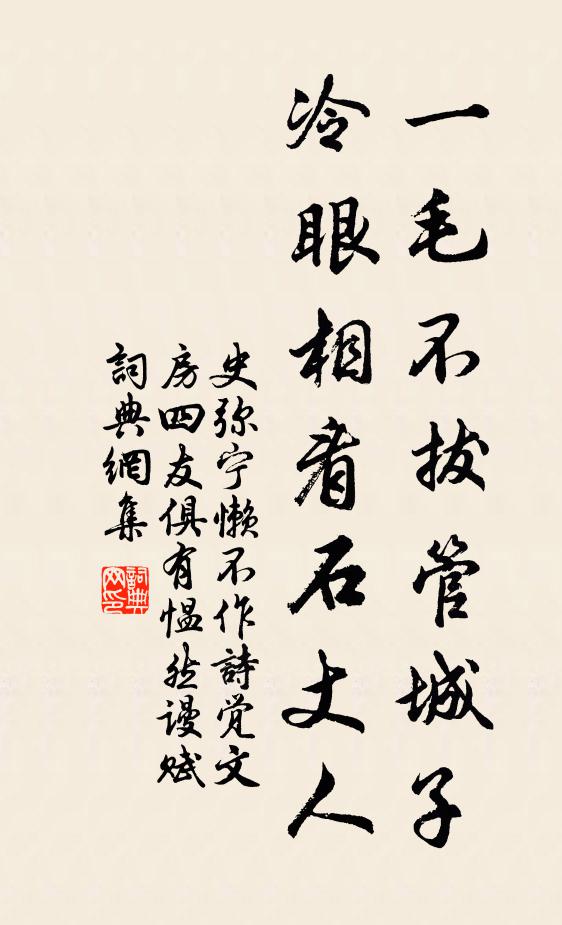 一毛不拔管城子
冷眼相看石丈人
史弥宁懒不作詩覚文
房四友俱有愠然谩赋
詞典網集
詞典
网印